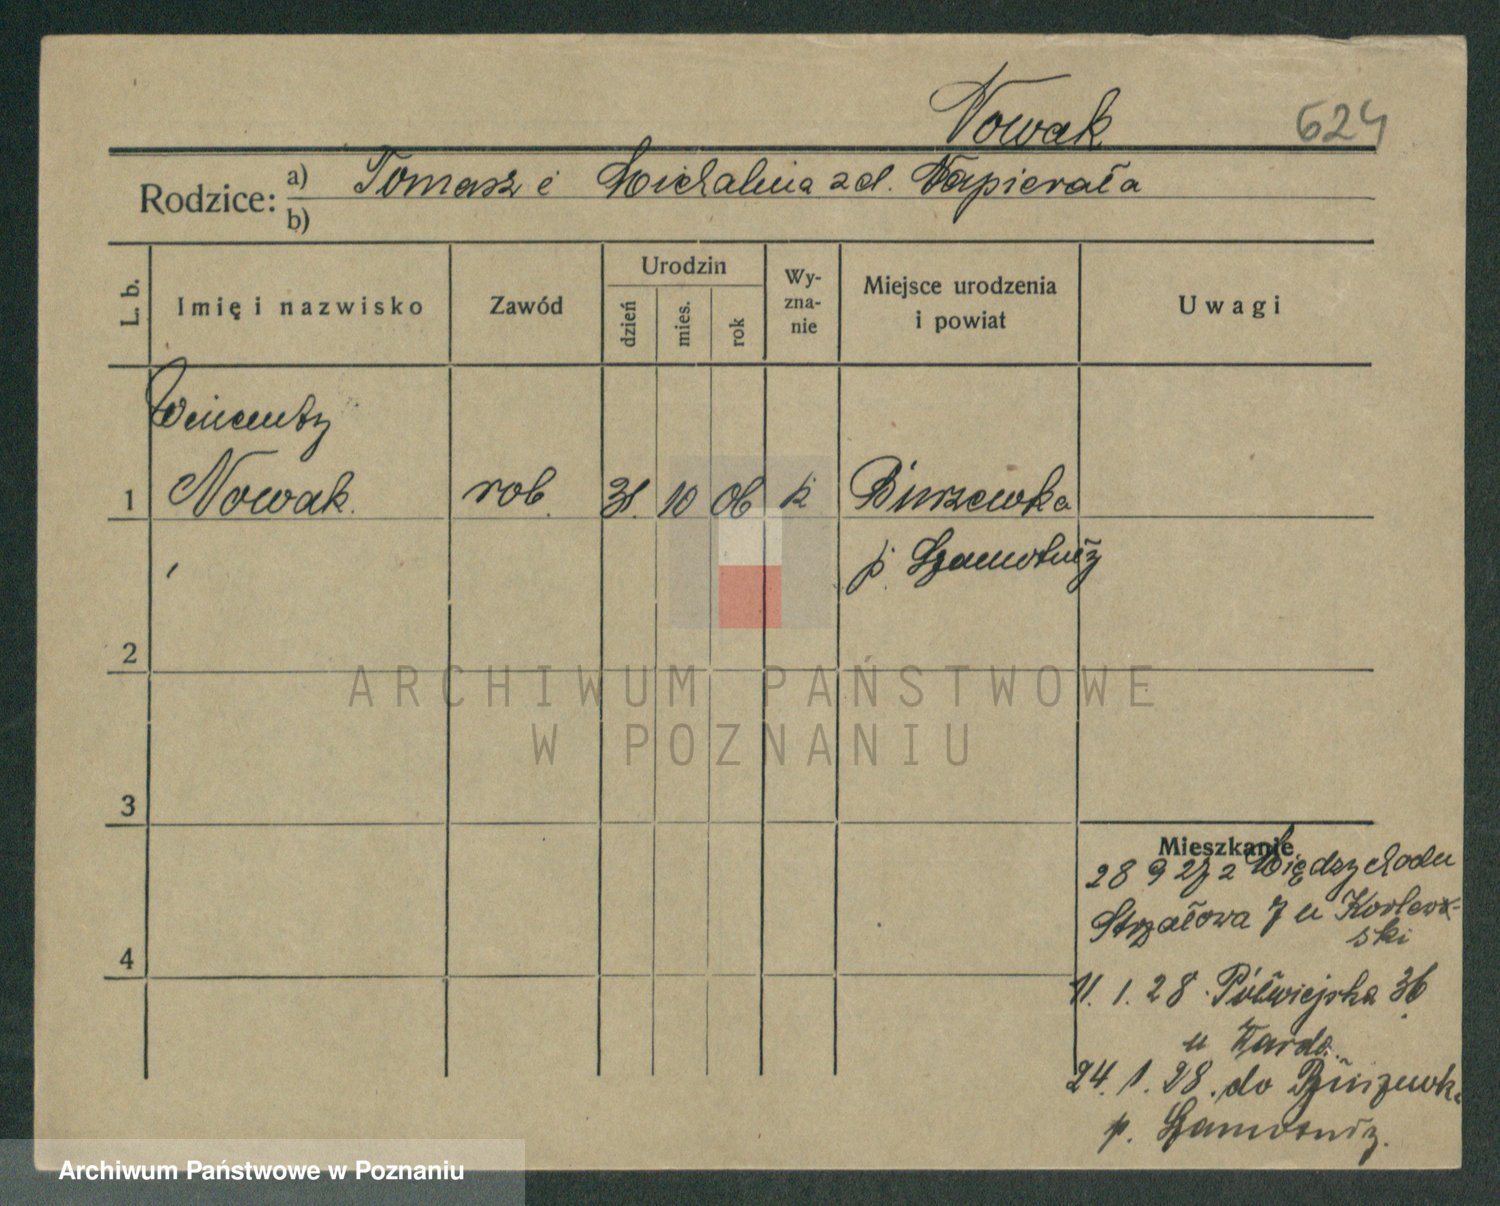 Nowak 624
Rodzice: a) Tomasz i Michalina z d. Napierała
b)
L. b. Imię i nazwisko Zawód Urodzin dzień mies. rok Wy-zna-nie Miejsce urodzenia i powiat Uwagi
Wincenty
1 Nowak. rob. 31. 10 06 k
p. Szamotuły
2
ARCHIWUM PAŃSTWOWE
W POZNANIU
3
Mieszkanie
28 9 27 z Międzychodu
Strzałowa 7 u
ski
11. 1. 28. Półwiejska 36
u
24. 1. 28. do
p.
4
Archiwum Państwowe w Poznaniu